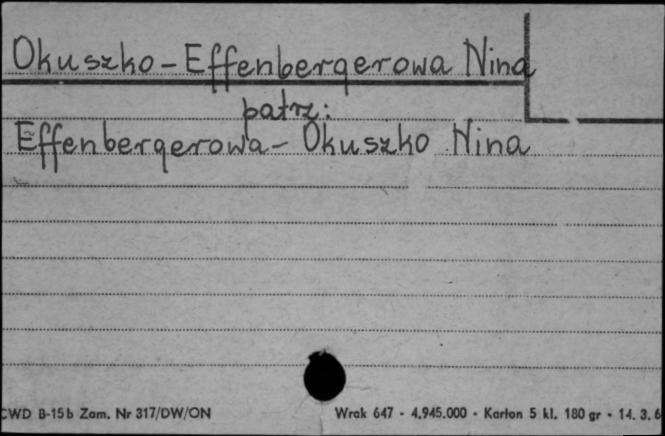 Okuszko-Effenbergerowa Nina
patrz:
Effenbergerowa-Okuszko Nina
CWD B-15b Zam. Nr 317/DW/ON
Wrak 647 - 4.945.000 - Karton 5 kl. 180 gr - 14. 3. 6